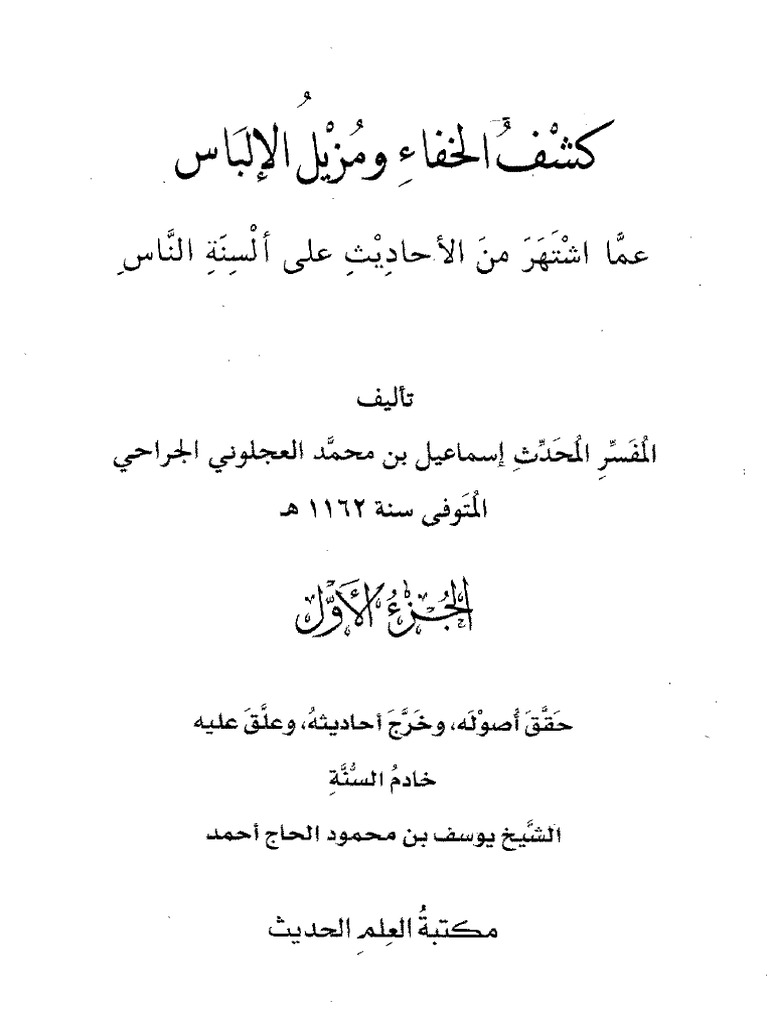 كشْفُ الخفاءِ ومُزيْلُ الإلبَاس
عمَّا اشْتَهَرَ منَ الأحادِيْثِ على ألْسِنَةِ النَّاسِ
تأليف
المُفَسِّرِ المُحَدِّثِ إسماعيل بن محمَّد العجلوني الجراحي
المُتَوفى سنة ١١٦٢ هـ
الجُزءُ الأَوَّل
حَقَّقَ أُصوْلَه، وخَرَّجَ أحاديثهُ، وعلَّقَ عليه
خادمُ السُّنَّةِ
الشَّيخ يوسف بن محمود الحاج أحمد
مكتبةُ العِلمِ الحديث